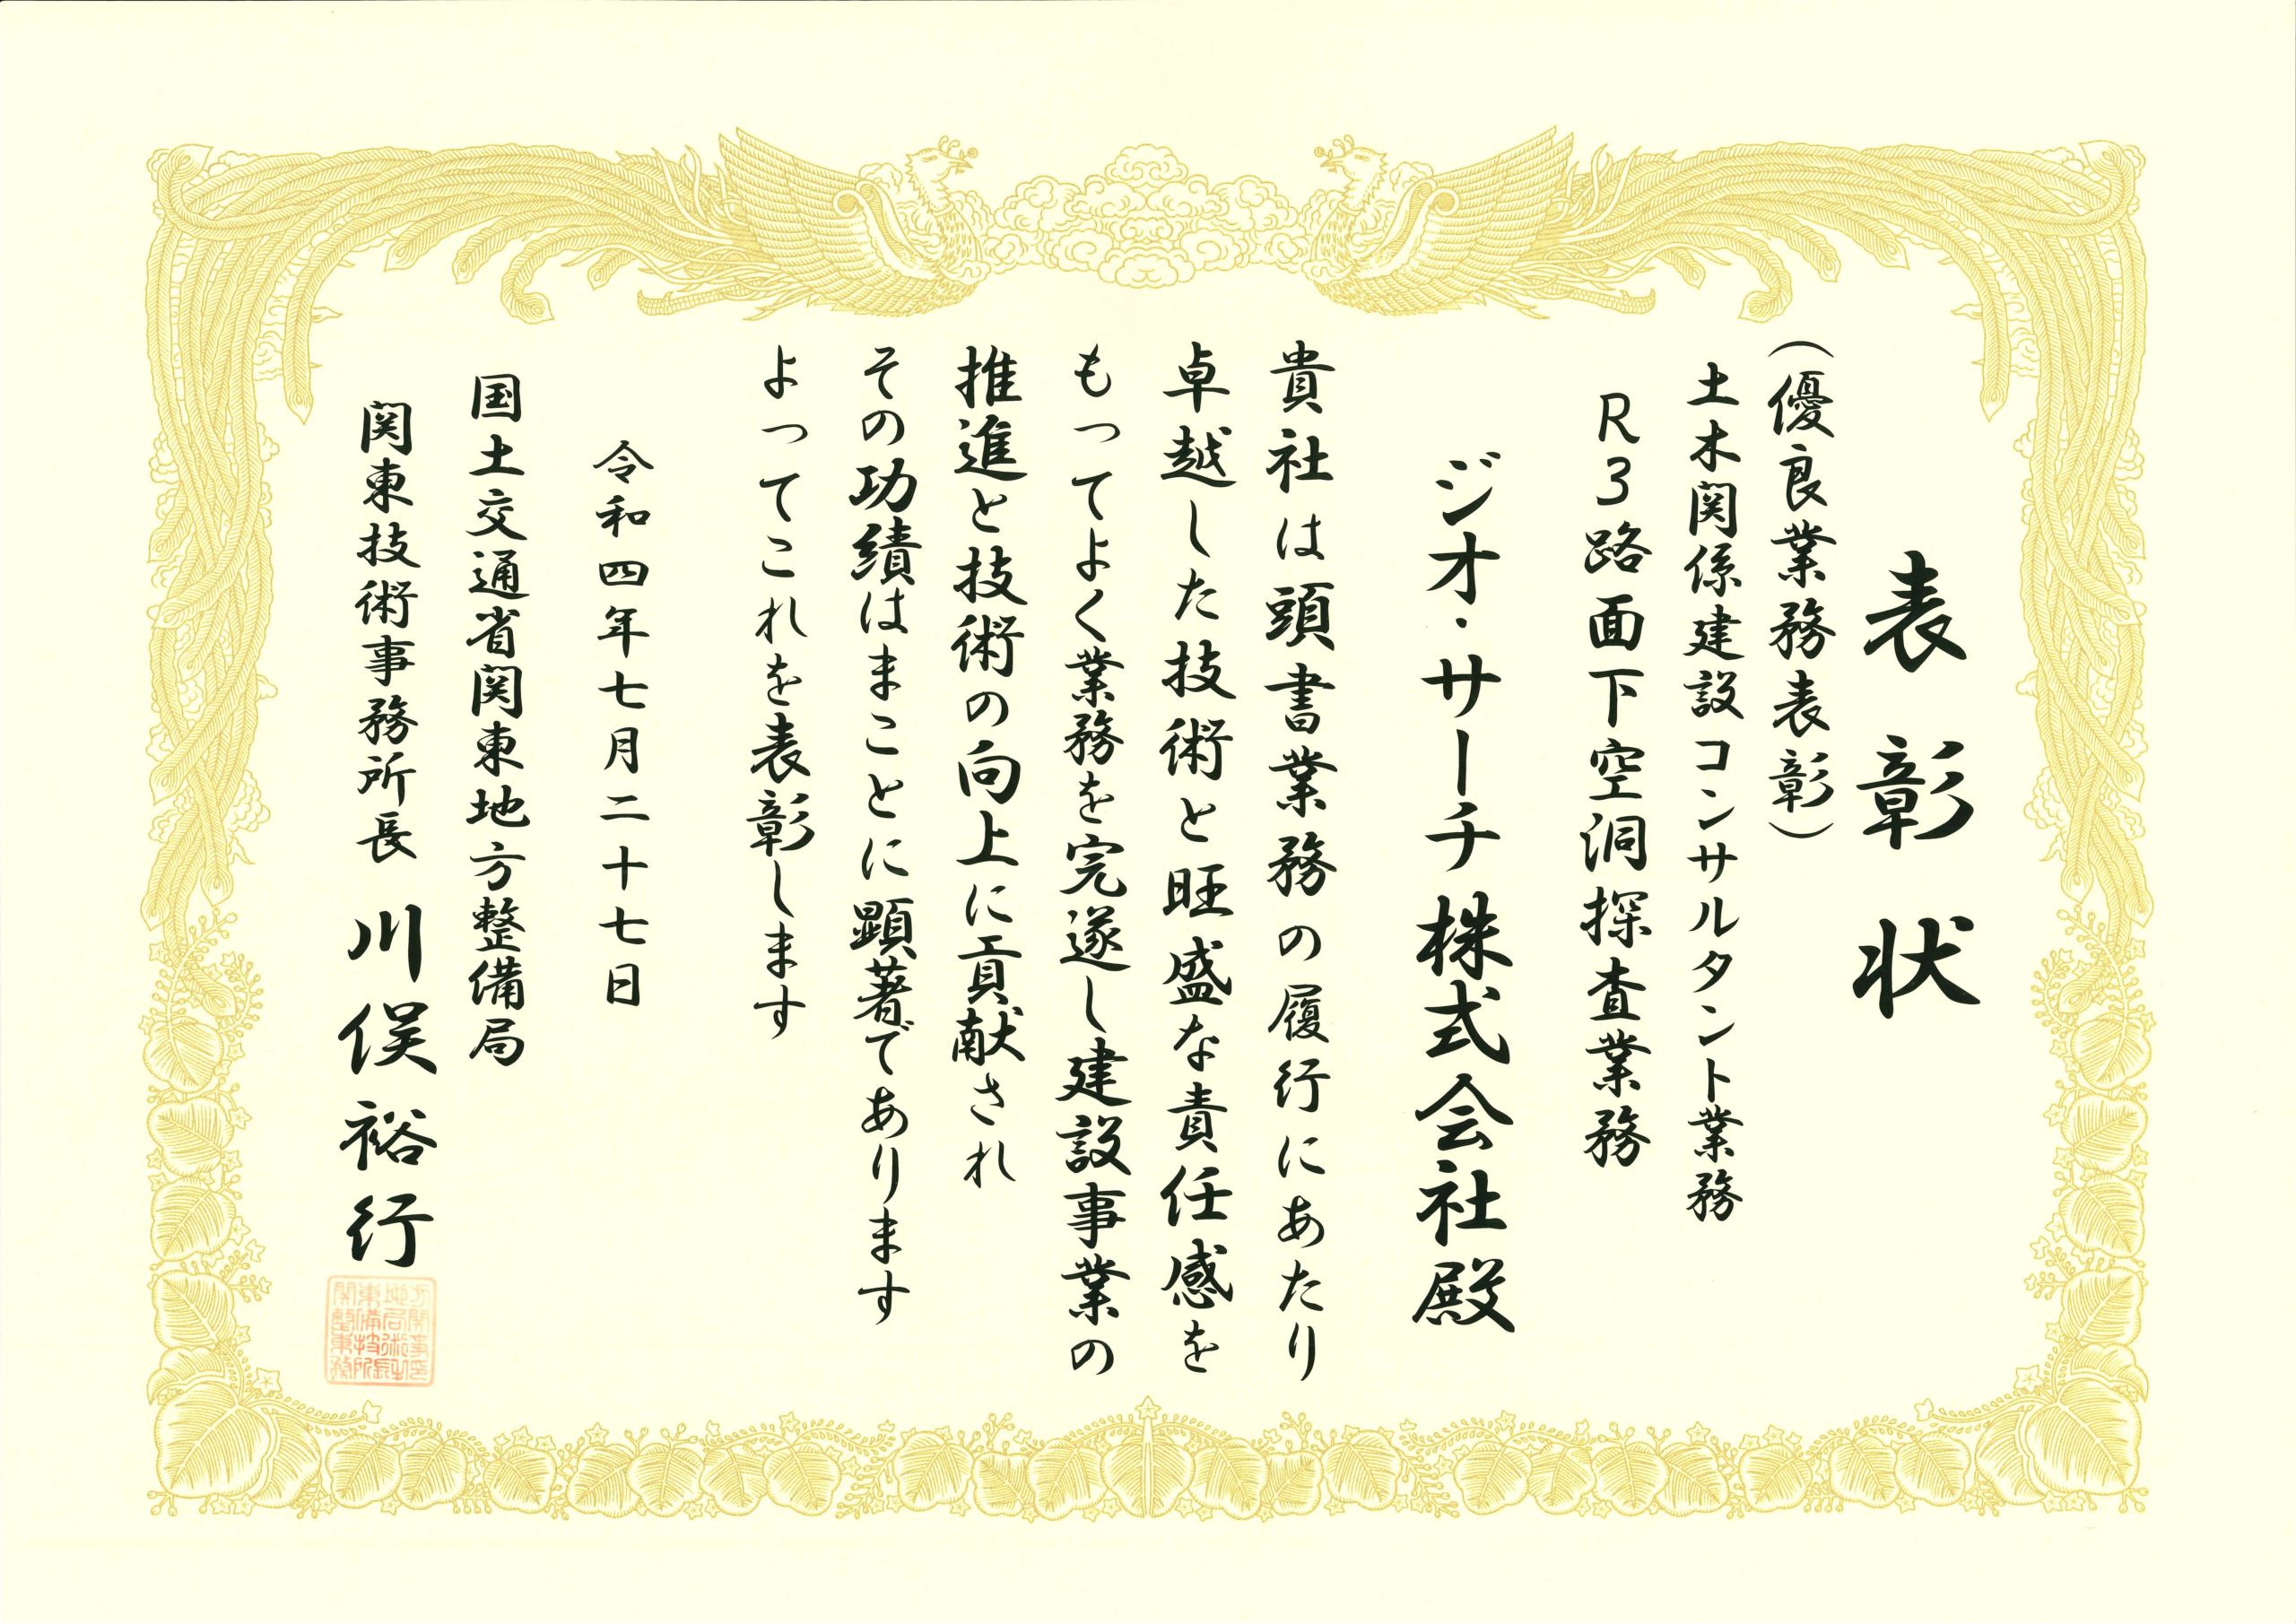 表彰状
（優良業務表彰）
土木関係建設コンサルタント業務
R3路面下空洞探査業務
ジオ・サーチ株式会社殿
貴社は頭書業務の履行にあたり
卓越した技術と旺盛な責任感を
もってよく業務を完遂し建設事業の
推進と技術の向上に貢献され
その功績はまことに顕著であります
よってこれを表彰します
令和四年七月二十七日
国土交通省関東地方整備局
関東技術事務所長 川俣裕行